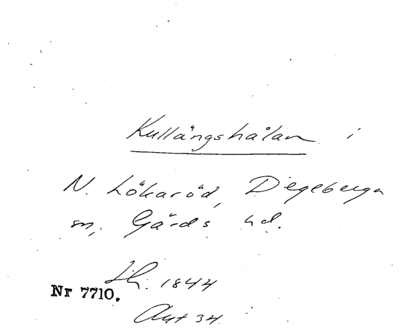 Kullängshålan i
N. Lökaröd, Degeberga
sn, Gärds hd.
Lh. 1844
Nr 7710.
Aut 34